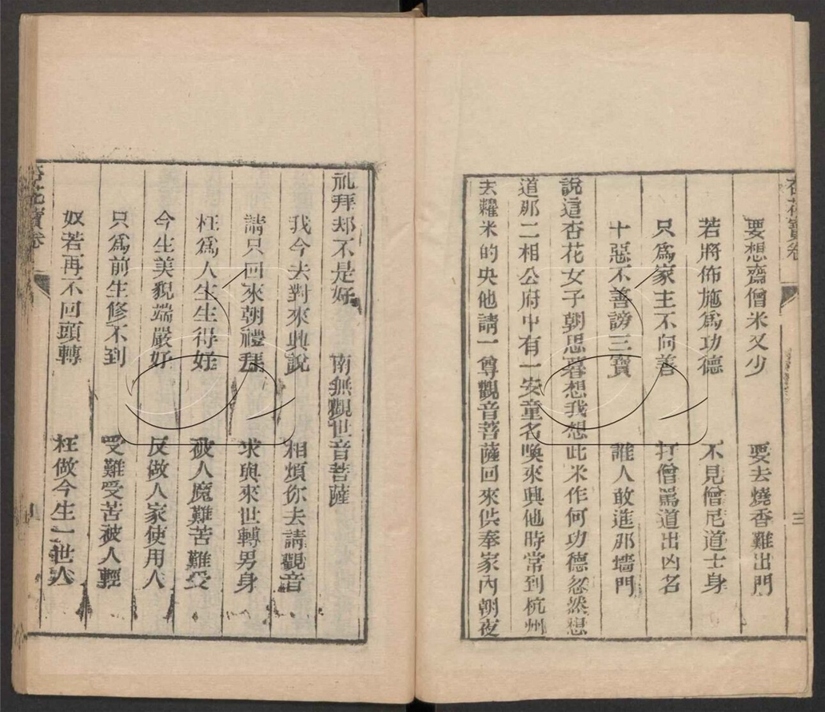 杏花寶卷
三
要想齋僧米又少 要去燒香難出門
若將佈施爲功德 不見僧尼道士身
只爲家主不向善 打僧罵道出凶名
十惡不善謗三寶 誰人敢進那墻門
說這杏花女子朝思暮想我想此米作何功德忽然想
道那二相公府中有一安童名喚來興他時常到杭州
去糶米的央他請一尊觀音菩薩回來供奉家內朝夜
礼拜却不是好 南無觀世音菩薩
我今去對來興說 相煩你去請觀音
請只回來朝禮拜 求與來世轉男身
枉爲人生生得好 被人魔難苦難受
今生美貌端嚴好 反做人家使用人
只爲前生修不到 受難受苦被人輕
奴若再不回頭轉 枉做今生一世人
杏花寶卷